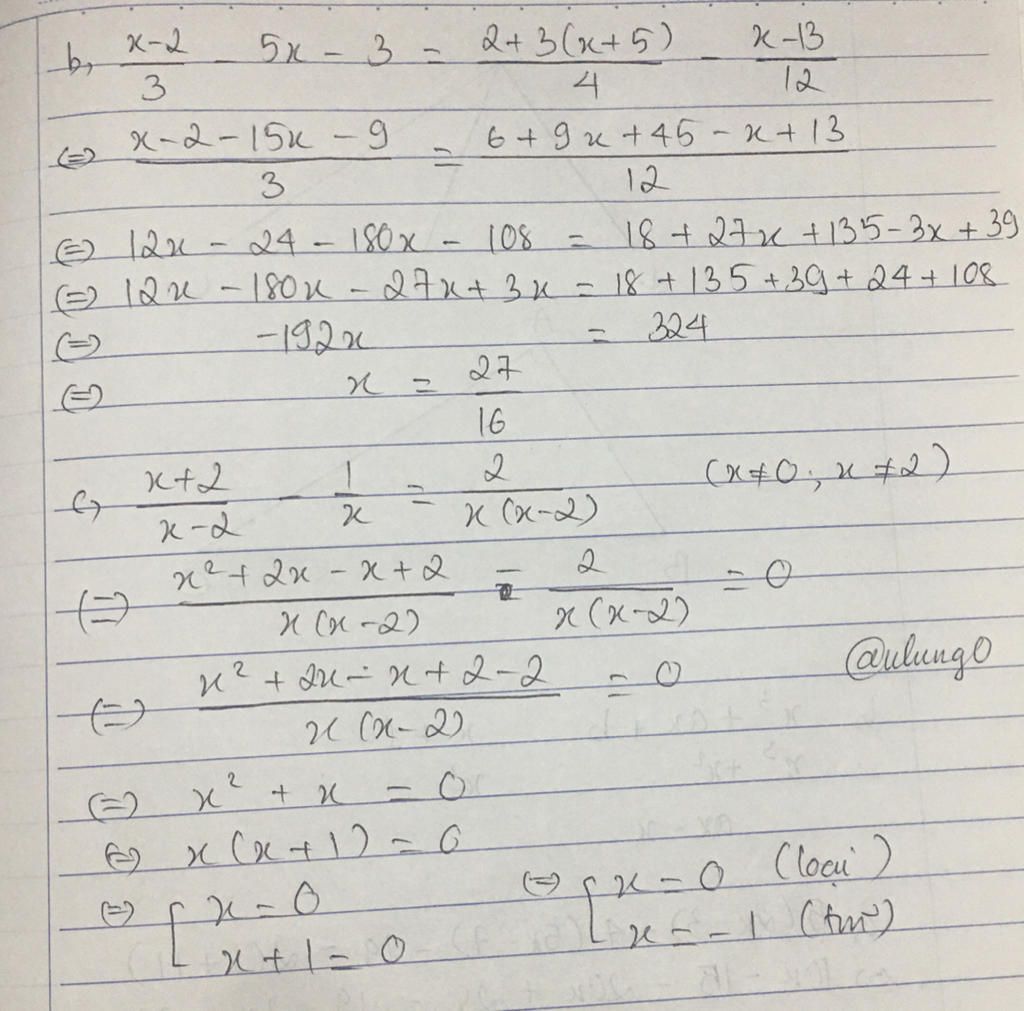 b, (x-2)/3 - 5x - 3 = (2+3(x+5))/4 - (x-13)/12
⇔ (x-2-15x-9)/3 = (6+9x+45-x+13)/12
⇔ 12x - 24 - 180x - 108 = 18 + 27x + 135 - 3x + 39
⇔ 12x - 180x - 27x + 3x = 18 + 135 + 39 + 24 + 108
⇔ -192x = 324
⇔ x = 27/16
c, (x+2)/(x-2) - 1/x = 2/(x(x-2)) (x≠0; x≠2)
⇔ (x²+2x-x+2)/(x(x-2)) - 2/(x(x-2)) = 0
⇔ (x²+2x-x+2-2)/(x(x-2)) = 0 @ulung0
⇔ x² + x = 0
⇔ x(x+1) = 0
⇔ [ x = 0 ⇔ [ x = 0 (loại)
x+1 = 0 x = -1 (tm)